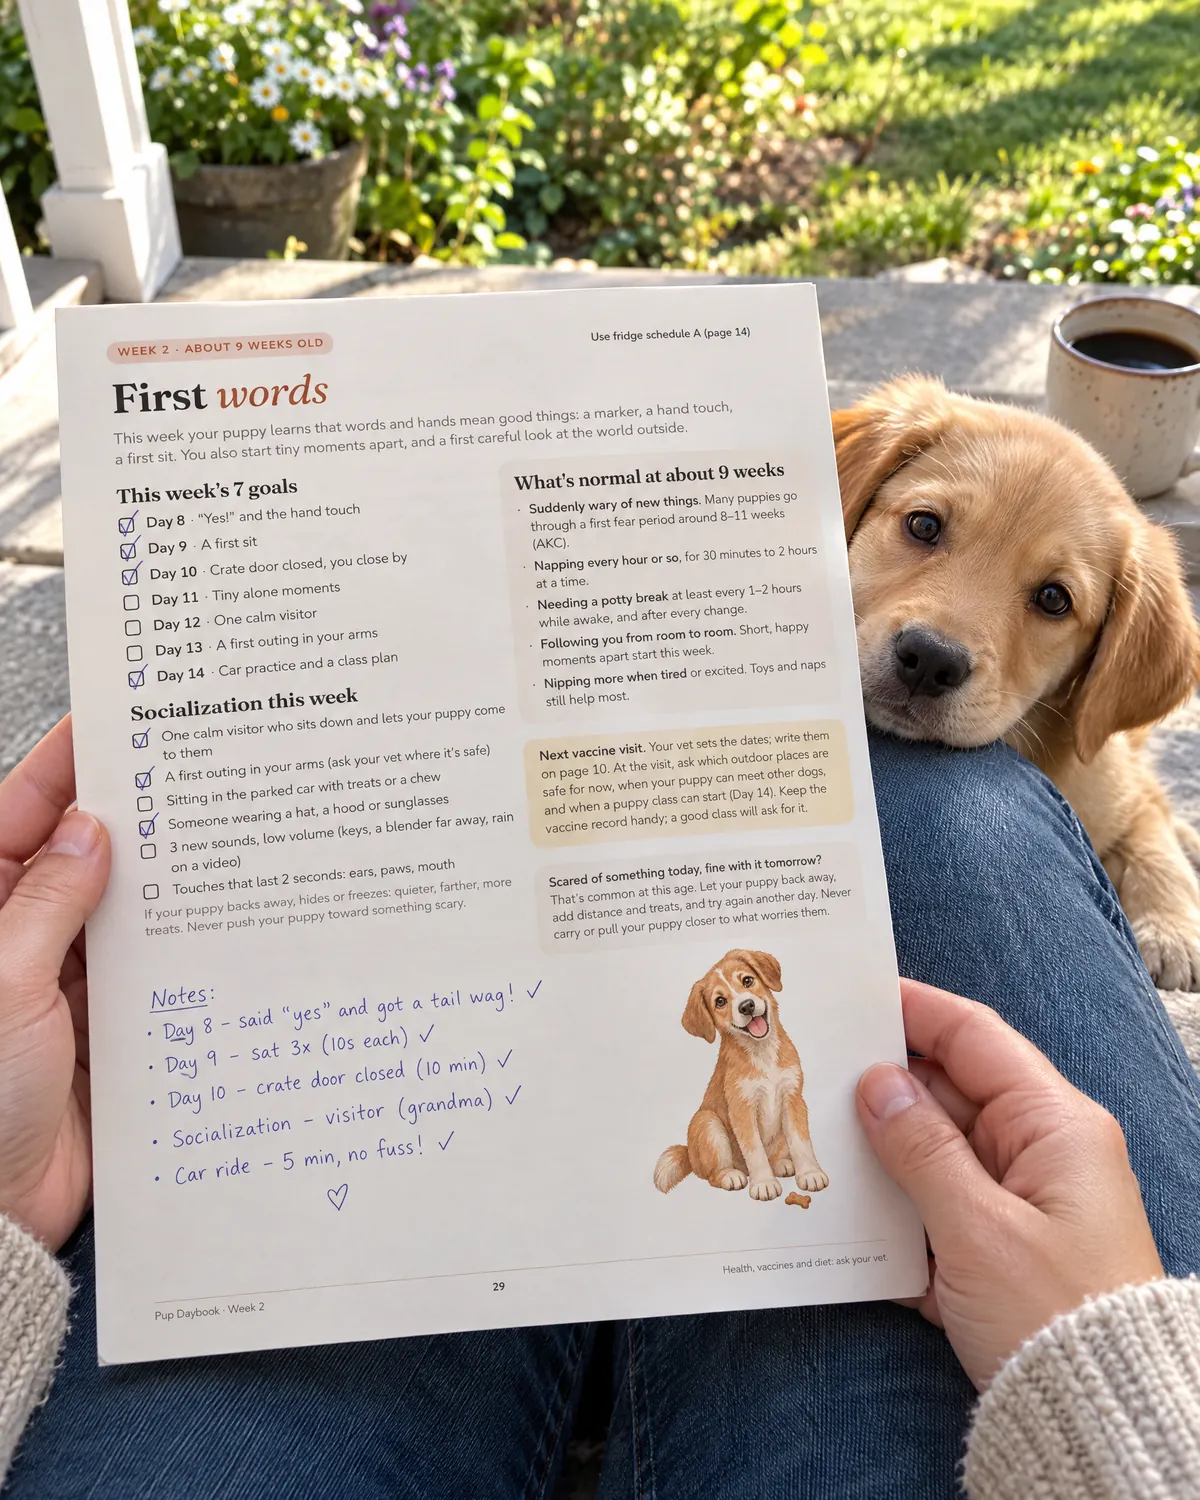 WEEK 2 · ABOUT 9 WEEKS OLD
Use fridge schedule A (page 14)
First words
This week your puppy learns that words and hands mean good things: a marker, a hand touch,
a first sit. You also start tiny moments apart, and a first careful look at the world outside.
This week's 7 goals
Day 8 · “Yes!” and the hand touch
Day 9 · A first sit
Day 10 · Crate door closed, you close by
Day 11 · Tiny alone moments
Day 12 · One calm visitor
Day 13 · A first outing in your arms
Day 14 · Car practice and a class plan
Socialization this week
One calm visitor who sits down and lets your puppy come
to them
A first outing in your arms (ask your vet where it's safe)
Sitting in the parked car with treats or a chew
Someone wearing a hat, a hood or sunglasses
3 new sounds, low volume (keys, a blender far away, rain
on a video)
Touches that last 2 seconds: ears, paws, mouth
If your puppy backs away, hides or freezes: quieter, farther, more
treats. Never push your puppy toward something scary.
What's normal at about 9 weeks
· Suddenly wary of new things. Many puppies go
through a first fear period around 8–11 weeks
(AKC).
· Napping every hour or so, for 30 minutes to 2 hours
at a time.
· Needing a potty break at least every 1–2 hours
while awake, and after every change.
· Following you from room to room. Short, happy
moments apart start this week.
· Nipping more when tired or excited. Toys and naps
still help most.
Next vaccine visit. Your vet sets the dates; write them
on page 10. At the visit, ask which outdoor places are
safe for now, when your puppy can meet other dogs,
and when a puppy class can start (Day 14). Keep the
vaccine record handy; a good class will ask for it.
Scared of something today, fine with it tomorrow?
That's common at this age. Let your puppy back away,
add distance and treats, and try again another day. Never
carry or pull your puppy closer to what worries them.
Notes:
• Day 8 – said “yes” and got a tail wag! ✓
• Day 9 – sat 3x (10s each) ✓
• Day 10 – crate door closed (10 min) ✓
• Socialization – visitor (grandma) ✓
• Car ride – 5 min, no fuss! ✓
♡
Pup Daybook · Week 2
29
Health, vaccines and diet: ask your vet.